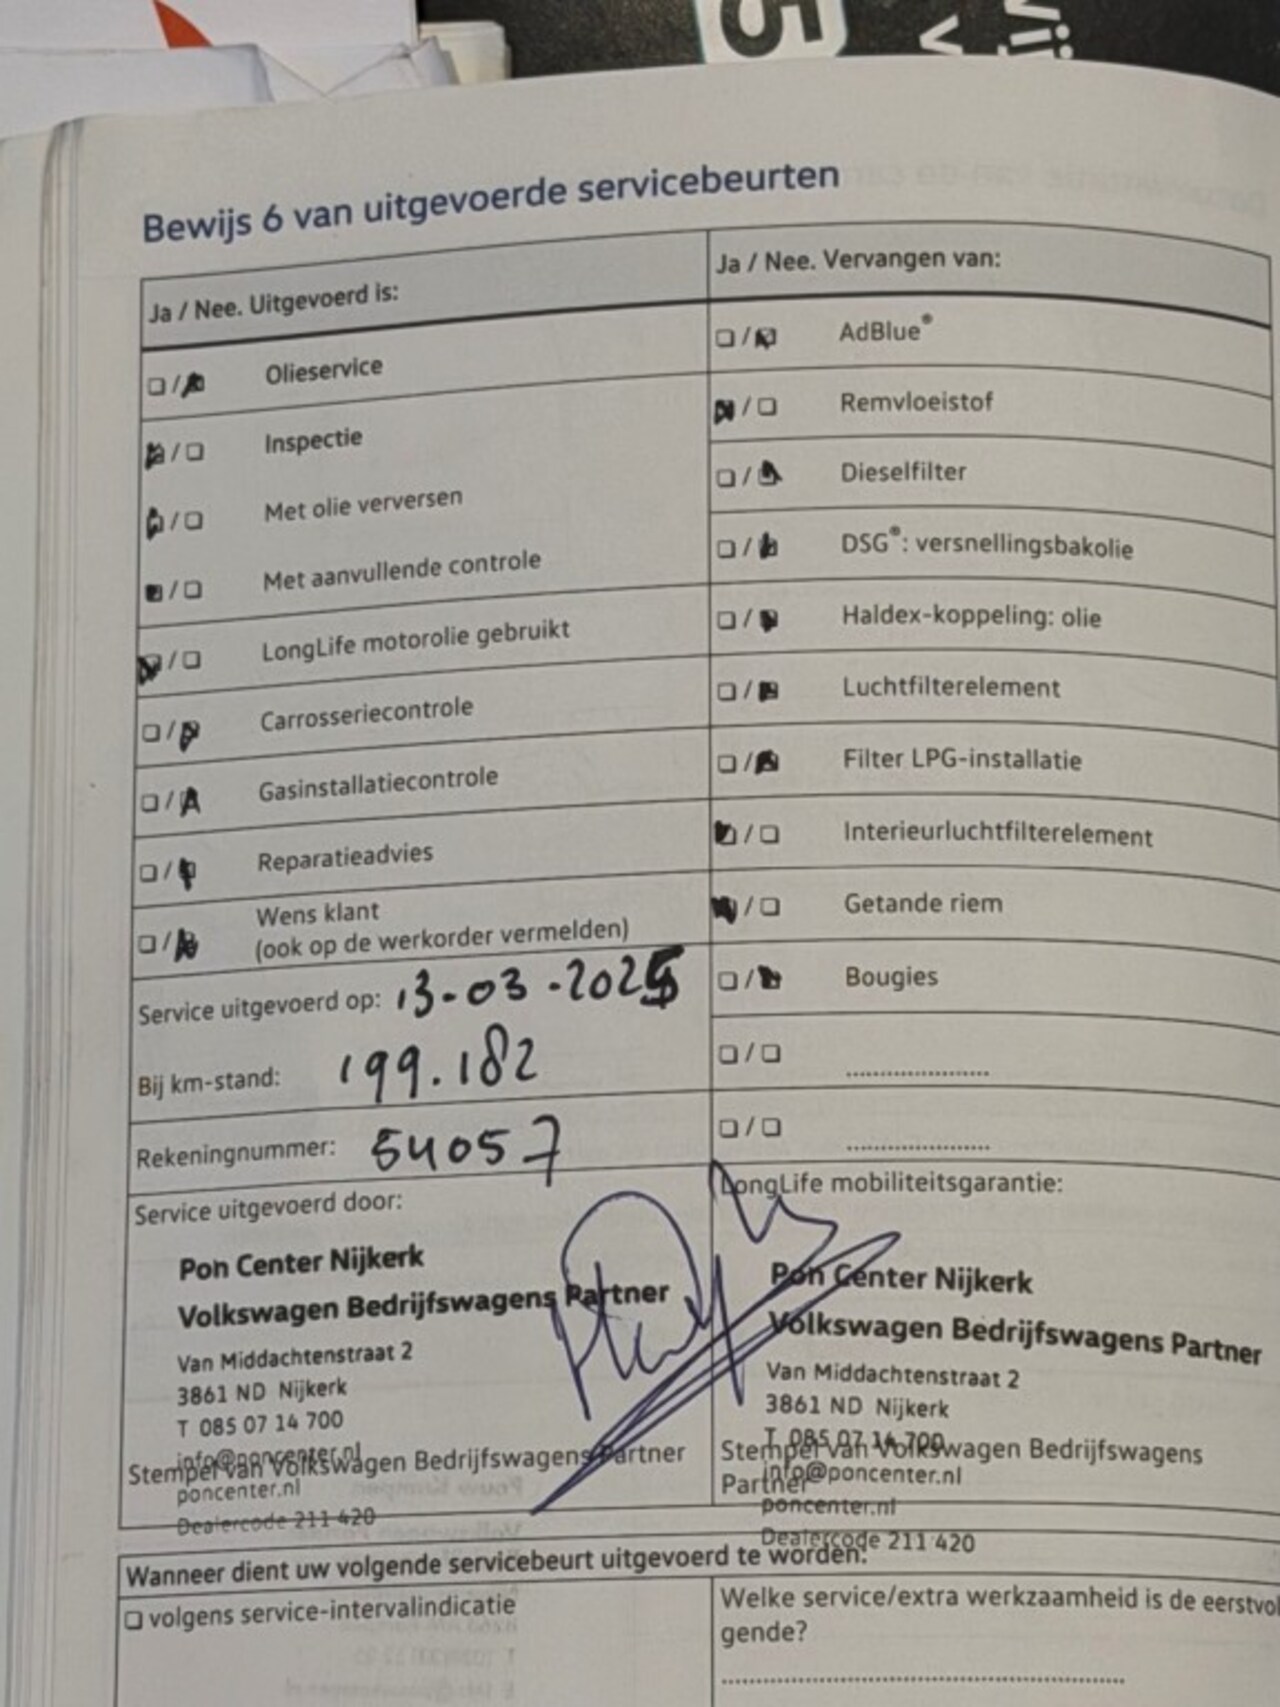 5
Bewijs 6 van uitgevoerde servicebeurten
Ja / Nee. Uitgevoerd is:
Olieservice
Inspectie
Met olie verversen
Met aanvullende controle
LongLife motorolie gebruikt
Carrosseriecontrole
Gasinstallatiecontrole
Reparatieadvies
Wens klant
(ook op de werkorder vermelden)
Service uitgevoerd op: 13-03-2025
Bij km-stand: 199.182
Rekeningnummer: 54057
Service uitgevoerd door:
Pon Center Nijkerk
Volkswagen Bedrijfswagens Partner
Van Middachtenstraat 2
3861 ND Nijkerk
T 085 07 14 700
info@poncenter.nl
Stempel van Volkswagen Bedrijfswagens Partner
poncenter.nl
Dealercode 211 420
Ja / Nee. Vervangen van:
AdBlue®
Remvloeistof
Dieselfilter
DSG®: versnellingsbakolie
Haldex-koppeling: olie
Luchtfilterelement
Filter LPG-installatie
Interieurluchtfilterelement
Getande riem
Bougies
LongLife mobiliteitsgarantie:
Pon Center Nijkerk
Volkswagen Bedrijfswagens Partner
Van Middachtenstraat 2
3861 ND Nijkerk
T 085 07 14 700
Stempel van Volkswagen Bedrijfswagens
Partner
info@poncenter.nl
poncenter.nl
Dealercode 211 420
Wanneer dient uw volgende servicebeurt uitgevoerd te worden:
volgens service-intervalindicatie
Welke service/extra werkzaamheid is de eerstvol
gende?